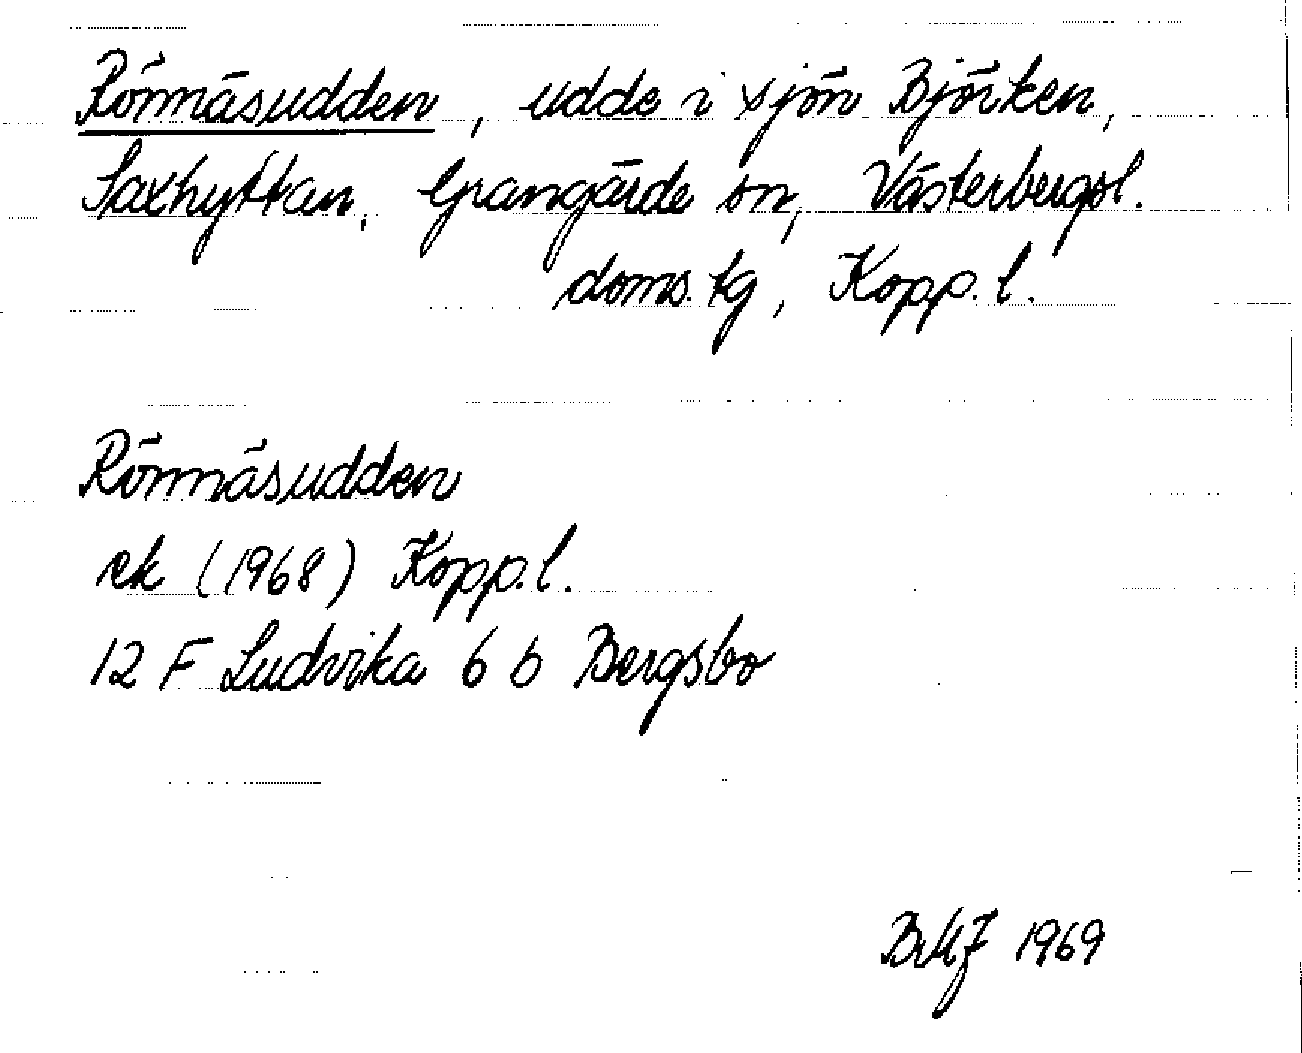 Rönnäsudden, udde i sjön Björken,
Saxhyttan, Grangärde sn, Västerbergsl.
doms. tg, Kopp. l.
Rönnäsudden
ek (1968) Kopp. l.
12 F Ludvika 6 b Bergsbo
BMJ 1969